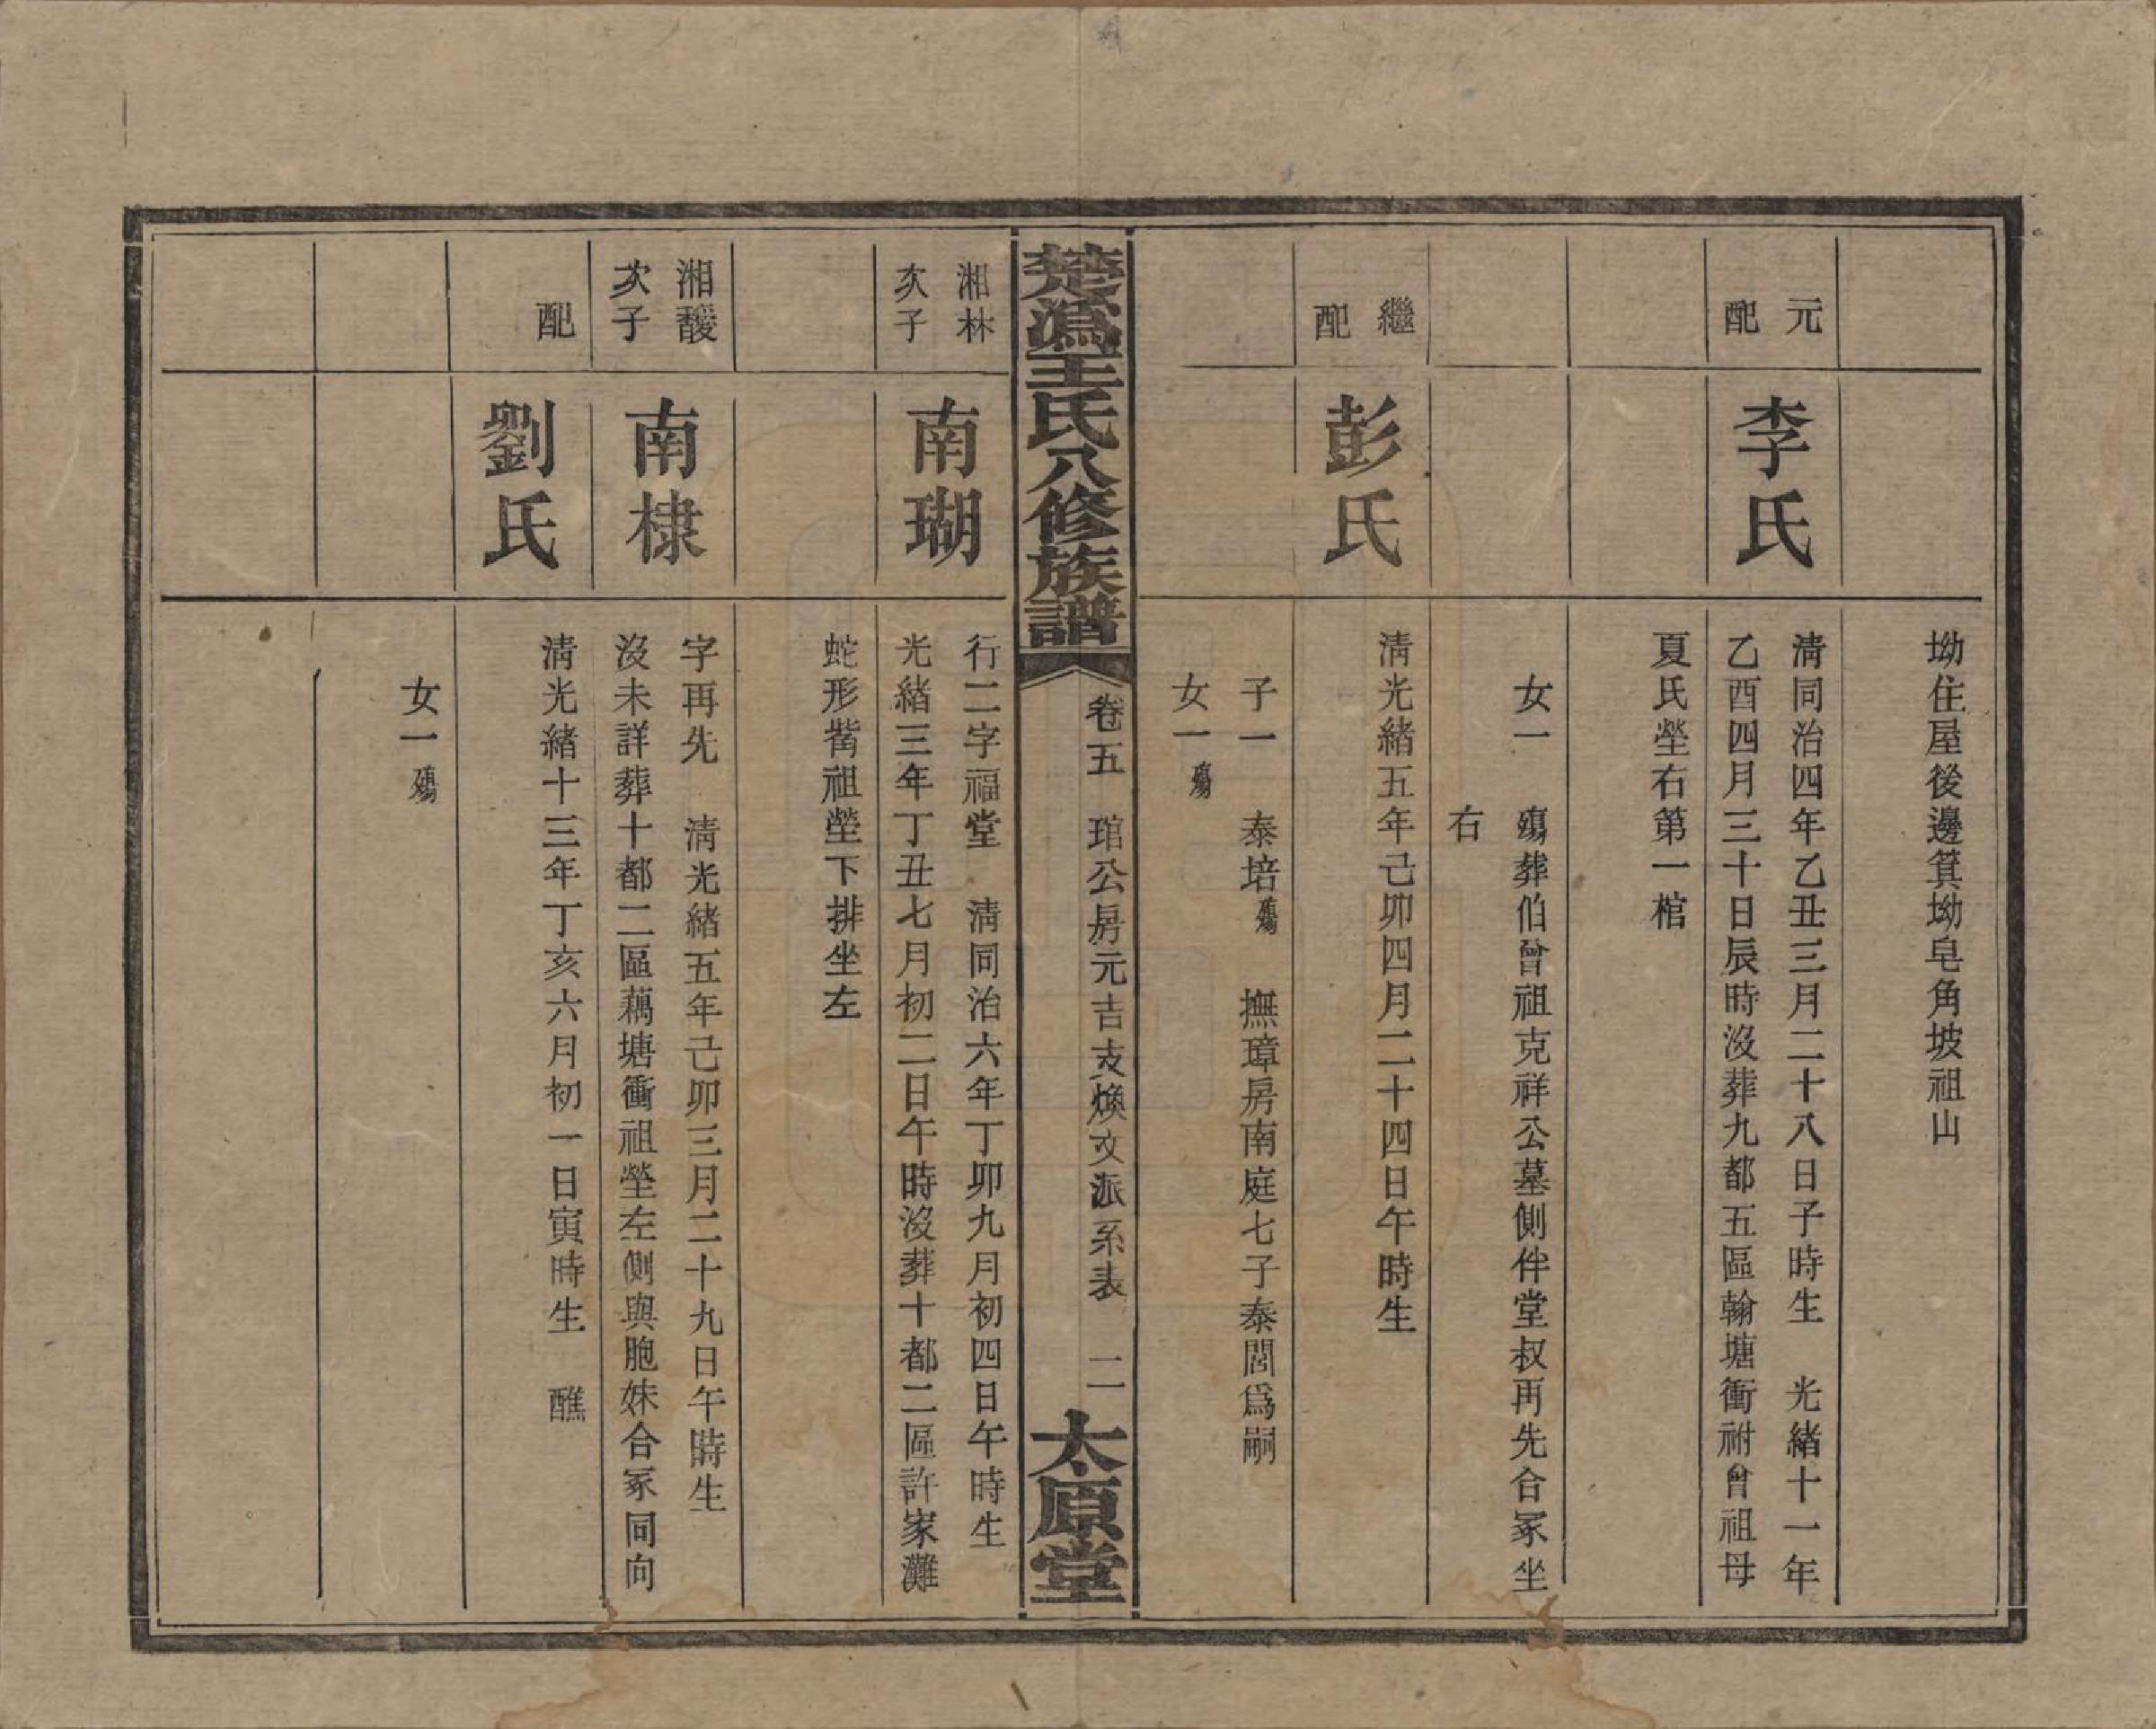 坳住屋後邊箕坳皂角坡祖山
元配
李氏
淸同治四年乙丑三月二十八日子時生　光緒十一年
乙酉四月三十日辰時沒葬九都五區翰塘衝祔曾祖母
夏氏塋右第一棺
女一　殤葬伯曾祖克祥公墓側伴堂叔再先合冢坐
右
繼配
彭氏
淸光緒五年己卯四月二十四日午時生
子一　泰培殤　撫璋房南庭七子泰閭爲嗣
女一殤
楚溈王氏八修族譜
卷五　琯公房元吉支煥文派系表　二
太原堂
湘林次子
南瑚
行二字福堂　淸同治六年丁卯九月初四日午時生
光緒三年丁丑七月初二日午時沒葬十都二區許家灘
蛇形嵍祖塋下排坐左
湘馥次子
南棣
字再先　淸光緒五年己卯三月二十九日午時生
沒未詳葬十都二區藕塘衝祖塋左側與胞妹合冢同向
配
劉氏
淸光緒十三年丁亥六月初一日寅時生　醮
女一殤